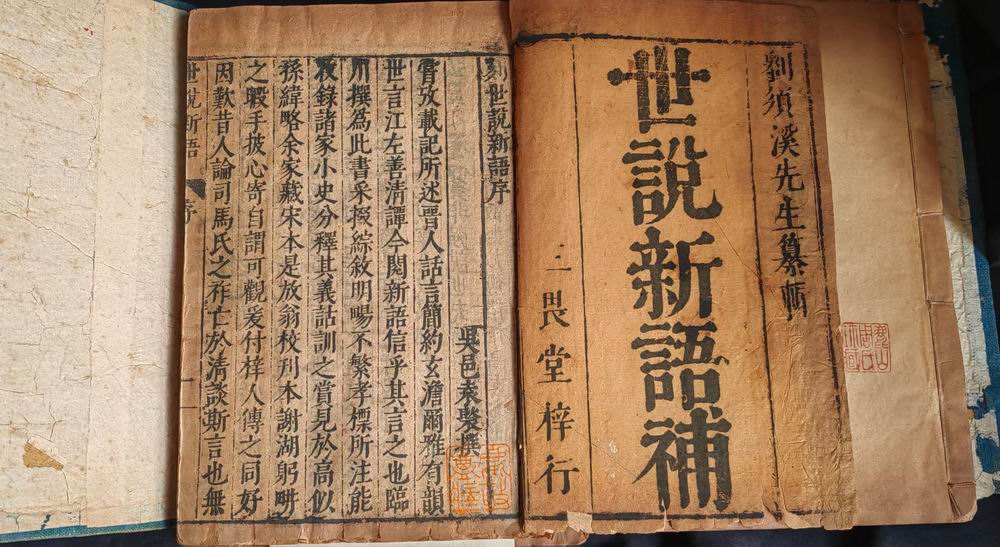 劉須溪先生纂輯
世說新語補
三畏堂梓行
刻世說新語序
吳邑袁褧撰
嘗攷載記所述晉人話言簡約玄澹爾雅有韻
世言江左善清譚今閱新語信乎其言之也臨
川撰為此書采掇綜敘明暢不繁孝標所注能
收錄諸家小史分釋其義詁訓之賞見於高似
孫緯略余家藏宋本是放翁校刊本謝湖躬畊
之暇手披心寄自謂可觀爰付梓人傳之同好
因歎昔人論司馬氏之祚亡於清談斯言也無
世說新語
序
一